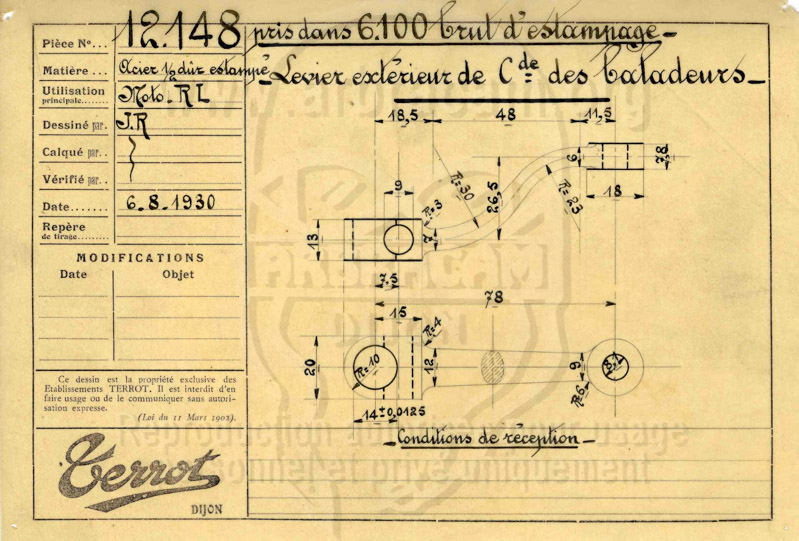 Pièce Nº... 12.148 pris dans 6.100 brut d'estampage_
Matière ... Acier ½ dur estampé _Levier extérieur de Cde des baladeurs_
Utilisation
principale........ Moto. R L
Dessiné par. J.R
Calqué par...
Vérifié par...
Date....... 6.8.1930
Repère
de tirage..........
MODIFICATIONS
Date Objet
Ce dessin est la propriété exclusive des
Etablissements TERROT. Il est interdit d'en
faire usage ou de le communiquer sans autori-
sation expresse.
(Loi du 11 Mars 1902).
Terrot
DIJON
18,5 48 11,5
9 R=3 R=30 26,5 R=23 6 7,8
18
13 7
7.5
78
15 R=4
20 R=10 12 9 8,1
R=6
14 ±0,0125
_Conditions de réception_
ARBRACAM
DIJON
Reproduction usage
personnel et privé uniquement